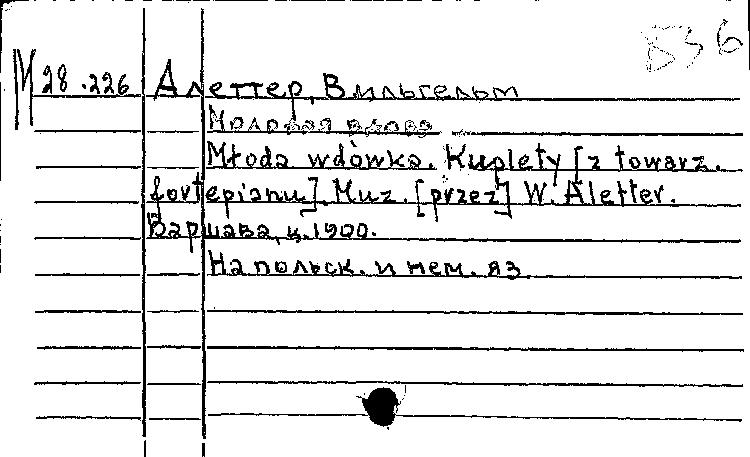 836
М 28.226 Алеттер, Вильгельм
Молодая вдова
Młoda wdówka. Kuplety [z towarz.
fortepianu]. Muz. [przez] W. Aletter.
Варшава, ц. 1900.
На польск. и нем. яз.